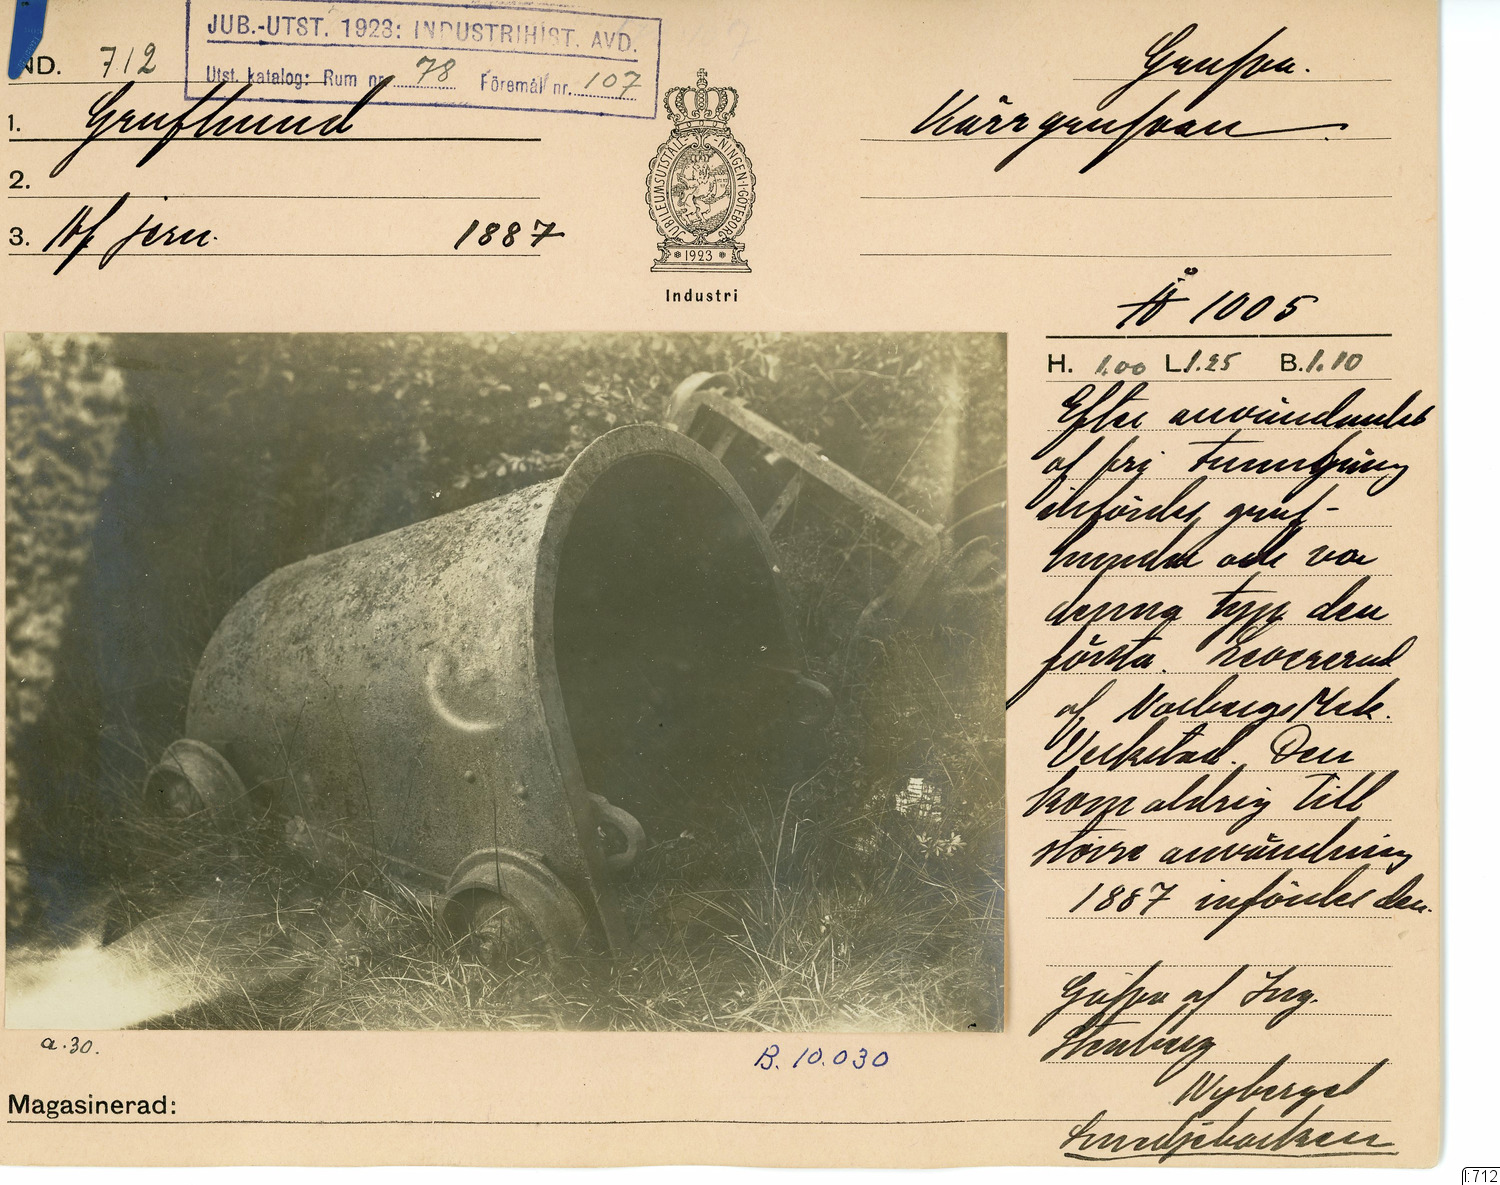 JUB.-UTST. 1923: INDUSTRIHIST. AVD.
Utst. katalog: Rum nr. 78 Föremål nr. 107
ND. 712
1. Grufhund
2.
3. Af jern. 1887
JUBILEUMSUTSTÄLLNINGEN·I·GÖTEBORG
1923
Industri
Grufva.
Kärrgrufvan
Å 1005
H. 1.00 L 1.25 B. 1.10
Efter användandet
af fri
infördes gruf-
hundar och var
denna typ den
första. Levererad
af Norbergs Mek.
Verkstad. Den
kom aldrig till
större användning
1887 infördes den.
Gåfva af Ing.
Stenberg
Nyberget
Smedjebacken
a.30.
B. 10.030
Magasinerad:
I:712